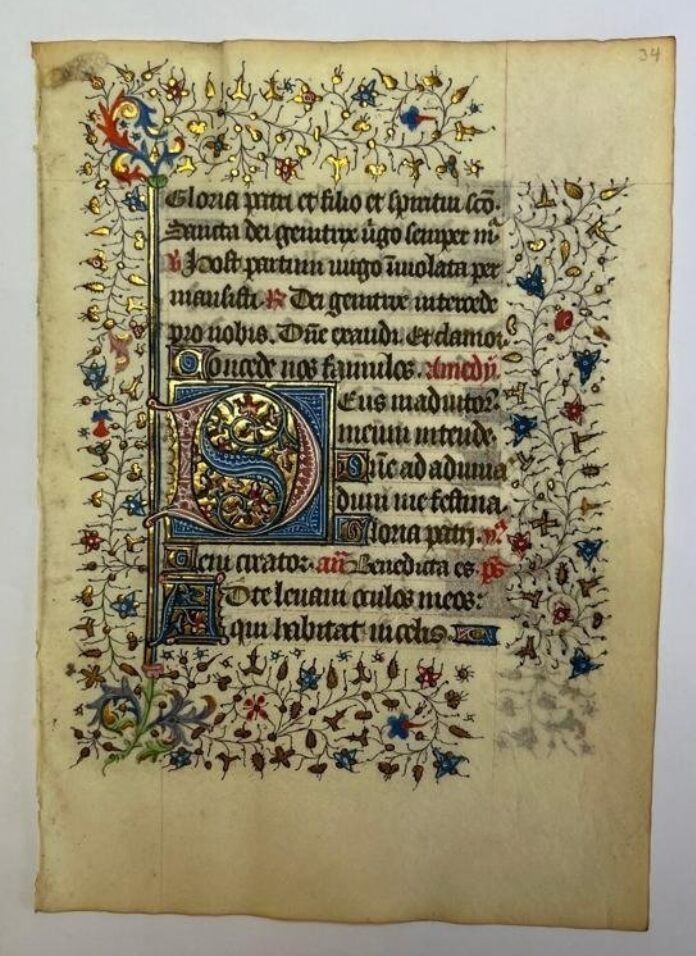 34
Gloria patri et filio et spiritui sco̅.
Sancta dei genitrix u̅go semper mᵃ
℣ Post partum uirgo i̅uiolata per
mansisti. ℟ Dei genitrix intercede
pro nobis. Dn̅e exaudi. Et clamor.
Concede nos famulos. Amedÿ
Deus in adiutor̅
meum intende.
Dn̅e ad adiuua
dum me festina.
Gloria patri.
Ueni creator. an̅ Benedicta es. ps̅
Ad te leuaui oculos meos:
qui habitat in celis.